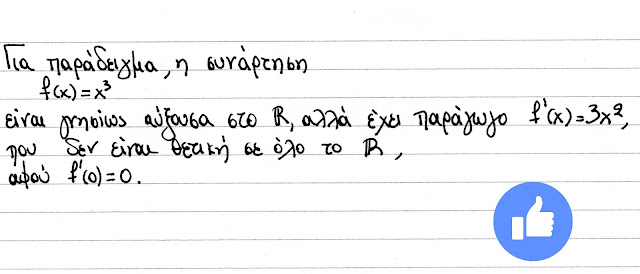 Για παράδειγμα, η συνάρτηση
f(x)=x³
είναι γνησίως αύξουσα στο ℝ, αλλά έχει παράγωγο f'(x)=3x²,
που δεν είναι θετική σε όλο το ℝ,
αφού f'(0)=0.